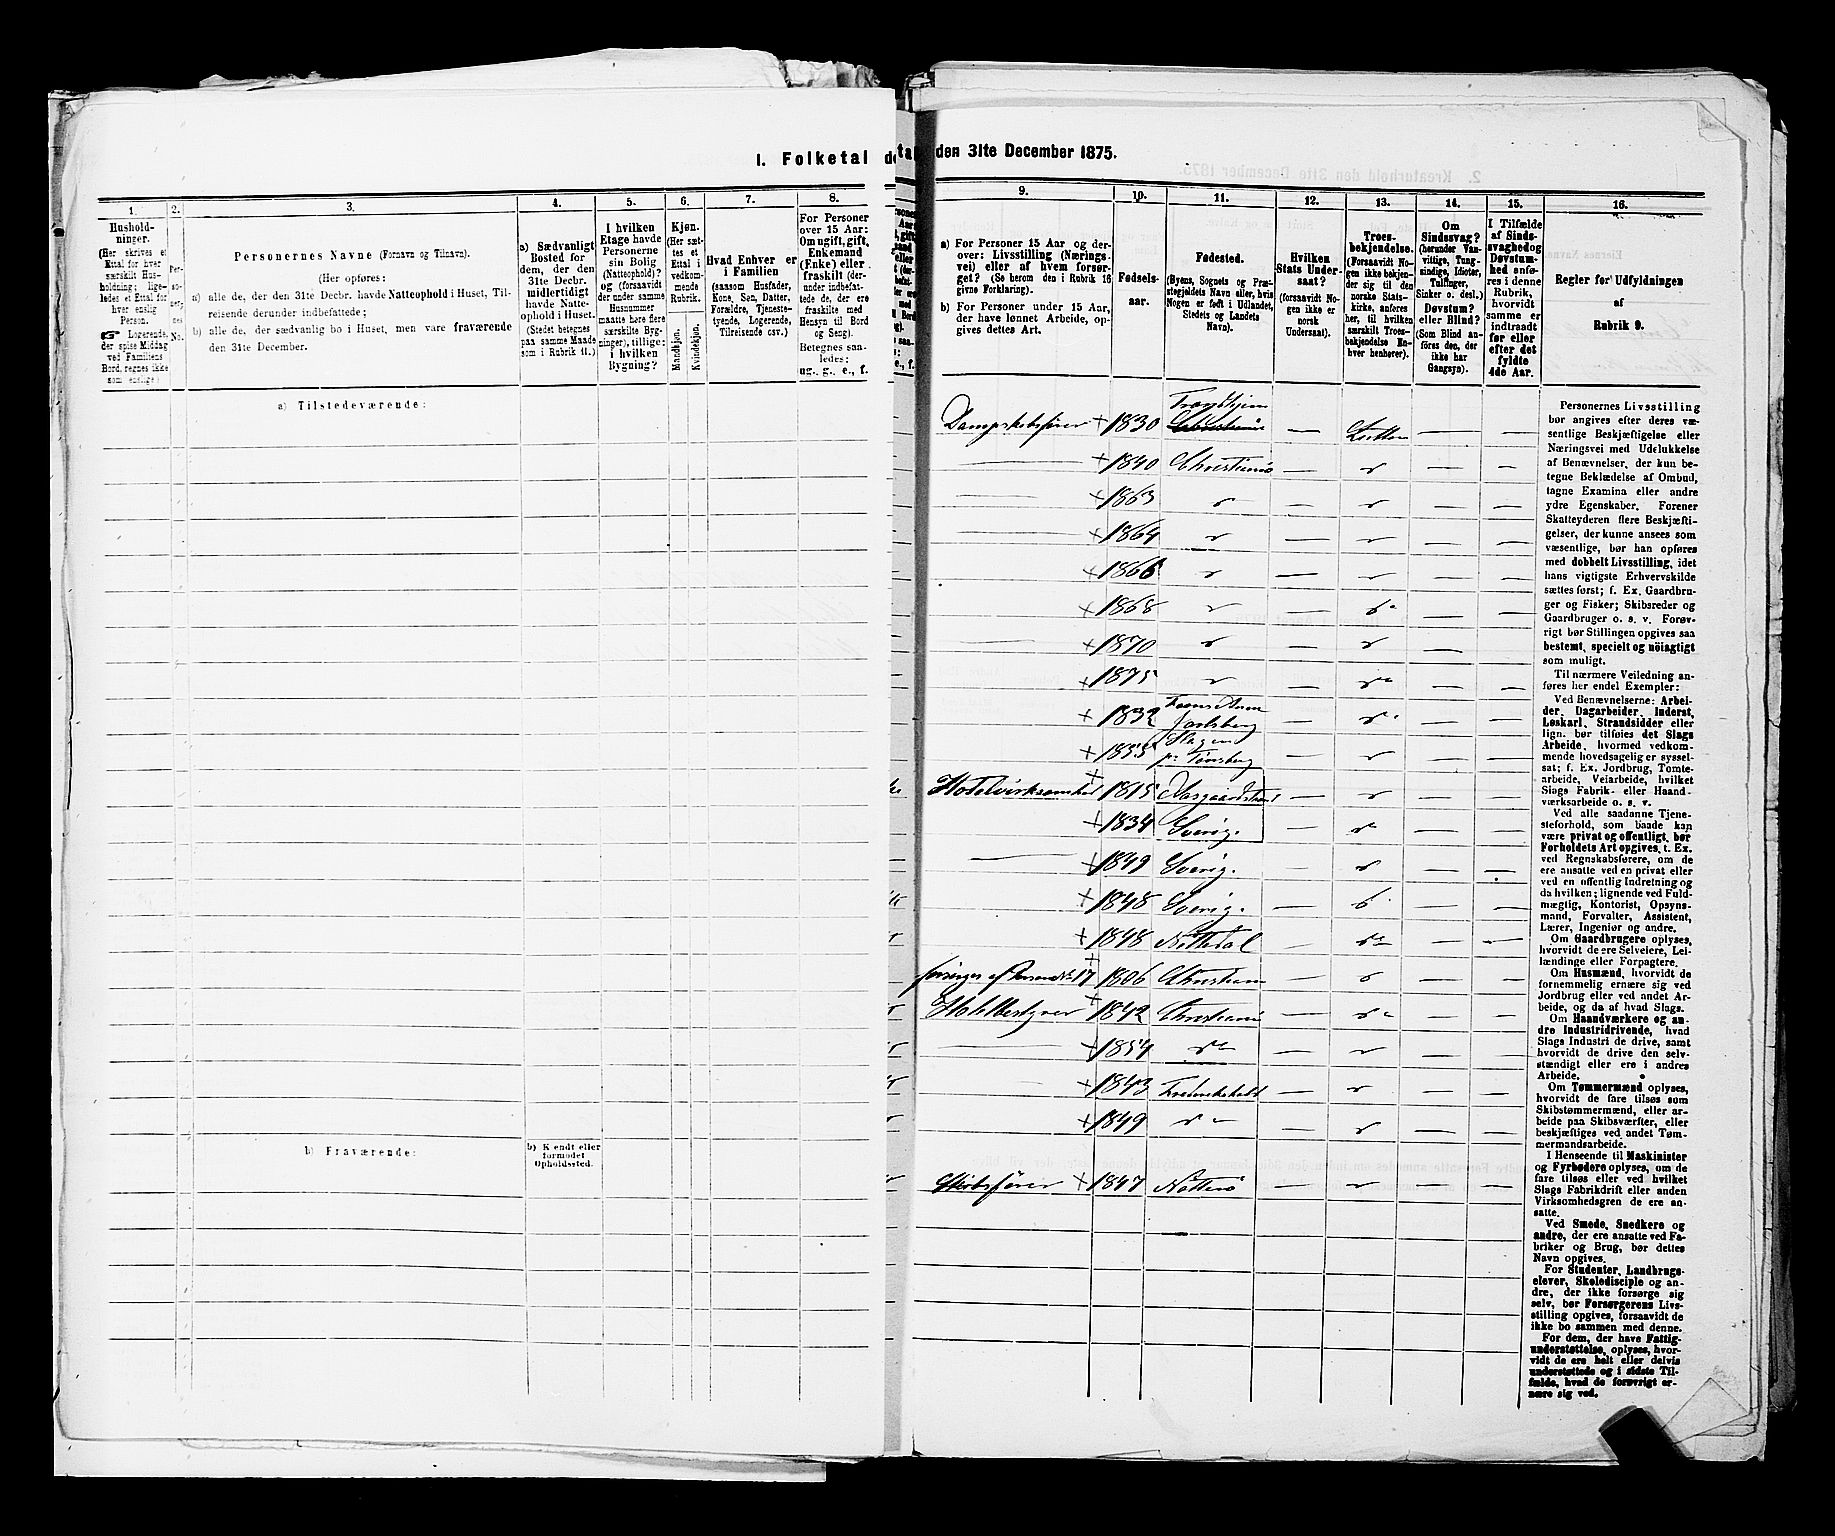 I. Folketal de
1.
2.
3.
4.
5.
6.
7.
8.
Hushold-
ninger.
(Her skrives et
Ettal for hver
særskilt Hus-
holdning; lige-
ledes et Ettal for
hver enslig
Person.
☞ Logerende,
der spise Middag
ved Familiens
Bord, regnes ikke
som enslige)
Personernes Navne (Fornavn og Tilnavn).
(Her opføres:
a) alle de, der den 31te Decbr. havde Natteophold i Huset, Til-
reisende derunder indbefattede;
b) alle de, der sædvanlig bo i Huset, men vare fraværende
den 31te December.
a) Sædvanligt
Bosted for
dem, der den
31te Decbr.
midlertidigt
havde Natte-
ophold i Huset.
(Stedet betegnes
paa samme Maade
som i Rubrik 11.)
I hvilken
Etage havde
Personerne
sin Bolig
(Natteophold)?
og (forsaavidt
der under samme
Husnummer
maatte høre flere
særskilte Byg-
ninger), tillige:
i hvilken
Bygning?
Kjøn.
(Her sæt-
tes et
Ettal i
vedkom-
mende
Rubrik.
Mandkjøn.
Kvindekjøn.
Hvad Enhver er
i Familien
(saasom Husfader,
Kone, Søn, Datter,
Forældre, Tjeneste-
tyende, Logerende,
Tilreisende osv.)
For Personer
over 15 Aar:
Om ugift, gift,
Enkemand
(Enke) eller
fraskilt (der-
under indbefat-
tede de, der ere
fraskilte med
Hensyn til Bord
og Seng).
Betegnes saa-
ledes:
ug., g., e., f.
a) Tilstedeværende:
b) Fraværende:
b) Kjendt eller
formodet
Opholdssted.
den 31te December 1875.
9.
10.
11.
12.
13.
14.
15.
16.
a) For Personer 15 Aar og der-
over: Livsstilling (Nærings-
vei) eller af hvem forsør-
get? (Se herom den i Rubrik 16
givne Forklaring).
b) For Personer under 15 Aar,
der have lønnet Arbeide, op-
gives dettes Art.
Fødsels-
aar.
Fødested.
(Byens, Sognets og Præ-
stegjeldets Navn eller, hvis
Nogen er født i Udlandet,
Stedets og Landets
Navn).
Hvilken
Stats Under-
saat?
(forsaavidt No-
gen ikke er
norsk
Undersaat).
Troes-
bekjendelse.
(Forsaavidt No-
gen ikke bekjen-
der sig til den
norske Stats-
kirke, anføres
her, til hvilken
særskilt Troes-
bekjendelse En-
hver henhører).
Om
Sindssvag?
(herunder Van-
vittige, Tung-
sindige, Idioter,
Tullinger,
Sinker o. desl.)
Døvstum?
eller Blind?
(Som Blind an-
føres den, der
ikke har
Gangsyn).
I Tilfælde
af Sinds-
svaghed og
Døvstum-
hed anfø-
res i denne
Rubrik,
hvorvidt
samme er
indtraadt
før eller
efter det
fyldte
4de Aar.
Regler før Udfyldningen
af
Rubrik 9.
Trondhjem
Dampskibsfører + 1830 Christiania — Luthr — —
+ 1840 Christiania — " — —
+ 1863 " — " — —
+ 1864 " — " — —
+ 1866 " — " — —
+ 1868 " — " — —
+ 1870 " — " — —
+ 1875 " — " — —
+ 1832 Jarlsberg — " — —
+ 1855 Slagen
pr Tønsberg — " — —
Hotelvirksomhed + 1815 Aasgaardstrand — " — —
+ 1834 Sverig. — " — —
+ 1849 Sverig. — " — —
+ 1848 Sverig. — " — —
+ 1848 Nittedal — " — —
forsørges af Person No 17 + 1806 Christiania — " — —
+ 1842 Christiania — " — —
+ 1854 " — " — —
+ 1843 Fredrikshald — " — —
+ 1849 " — " — —
Skibsfører + 1847 Nøtterø — " — —
Personernes Livsstilling
bør angives efter deres væ-
sentlige Beskjæftigelse eller
Næringsvei med Udelukkelse
af Benævnelser, der kun be-
tegne Beklædelse af Ombud,
tagne Examina eller andre
ydre Egenskaber. Forener
Skatteyderen flere Beskjæfti-
gelser, der kunne ansees som
væsentlige, bør han opføres
med dobbelt Livsstilling, idet
hans vigtigste Erhvervskilde
sættes først; f. Ex. Gaardbru-
ger og Fisker; Skibsreder og
Gaardbruger o. s. v. Forøv-
rigt bør Stillingen opgives saa
bestemt, specielt og nöiagtigt
som muligt.
Til nærmere Veiledning an-
føres her endel Exempler:
Ved Benævnelserne: Arbei-
der, Dagarbeider, Inderst,
Løskarl, Strandsidder eller
lign. bør tilføies det Slags
Arbeide, hvormed vedkom-
mende hovedsagelig er syssel-
sat; f. Ex. Jordbrug, Tomte-
arbeide, Veiarbeide, hvilket
Slags Fabrik- eller Haand-
værksarbeide o. s. v.
Ved alle saadanne Tjene-
steforhold, som baade kan
være privat og offentligt, bør
Forholdets Art opgives, t. Ex.
ved Regnskabsførere, om de
ere ansatte ved en privat eller
ved en offentlig Indretning og
da hvilken; lignende ved Fuld-
mægtig, Kontorist, Opsyns-
mand, Forvalter, Assistent,
Lærer, Ingeniør og andre.
Om Gaardbrugere oplyses,
hvorvidt de ere Selveiere, Lei-
lændinge eller Forpagtere.
Om Husmænd, hvorvidt de
fornemmelig ernære sig ved
Jordbrug eller ved andet Ar-
beide, og da af hvad Slags.
Om Haandværkere og an-
dre Industridrivende, hvad
Slags Industri de drive, samt
hvorvidt de drive den selv-
stændigt eller ere i andres
Arbeide.
Om Tømmermænd oplyses,
hvorvidt de fare tilsøs som
Skibstømmermænd, eller ar-
beide paa Skibsværfter, eller
beskjæftiges ved andet Tøm-
mermandsarbeide.
I Henseende til Maskinister
og Fyrbødere oplyses, om de
fare tilsøs eller ved hvilket
Slags Fabrikdrift eller anden
Virksomhedsgren de ere an-
satte.
Ved Smede, Snedkere og
andre, der ere ansatte ved Fa-
briker og Brug, bør dettes
Navn opgives.
For Studenter, Landbrugs-
elever, Skoledisciple og an-
dre, der ikke forsørge sig
selv, bør Forsørgerens Livs-
stilling opgives, forsaavidt de
ikke bo sammen med denne.
For dem, der have Fattig-
understøttelse, oplyses, hvor-
vidt de ere helt eller delvis
understøttede og i sidste Til-
fælde, hvad de forøvrigt er-
nære sig ved.